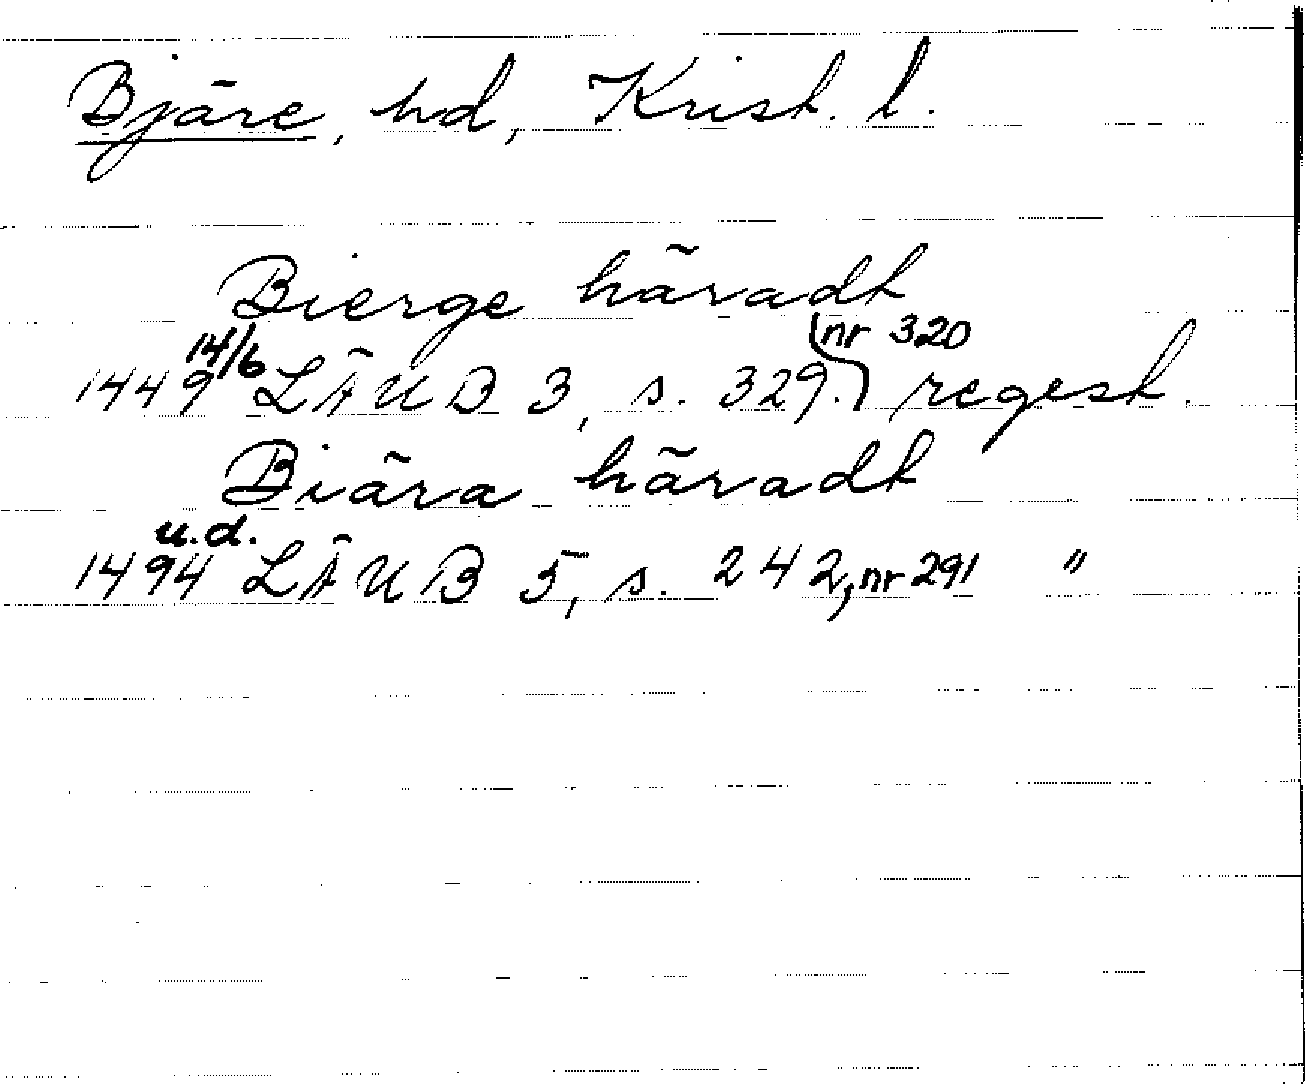 Bjäre, hd, Krist. l.
Bierge häradt
1449 14/6 LÄUB 3, s. 329. nr 320 regest.
Biära häradt
1494 u.d. LÄUB 5, s. 242, nr 291 "